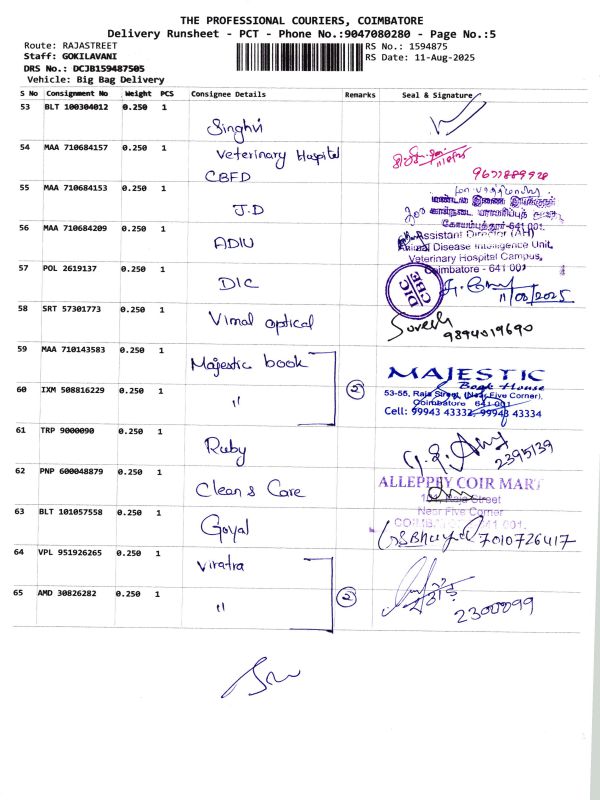 THE PROFESSIONAL COURIERS, COIMBATORE
Delivery Runsheet - PCT - Phone No.:9047080280 - Page No.:5
Route: RAJASTREET
RS No.: 1594875
Staff: GOKILAVANI
RS Date: 11-Aug-2025
DRS No.: DCJB159487505
Vehicle: Big Bag Delivery
S No Consignment No Weight PCS Consignee Details Remarks Seal & Signature
53 BLT 100304012 0.250 1
Singhvi
54 MAA 710684157 0.250 1
Veterinary Hospital
CBFD
9677889928
55 MAA 710684153 0.250 1
J.D
மண்டல இணை இயக்குநர்
கோயம்புத்தூர்-641 001.
56 MAA 710684209 0.250 1
ADIU
Assistant Director (AH)
Animal Disease Intelligence Unit,
Veterinary Hospital Campus,
Coimbatore - 641 001
57 POL 2619137 0.250 1
DIC
DIC
CBE
11/08/2025
58 SRT 57301773 0.250 1
Vimal optical
Suresh
9894019690
59 MAA 710143583 0.250 1
Majestic book
2
MAJESTIC
Book House
53-55, Raja Street, (Near Five Corner),
Coimbatore 641 001
Cell: 99943 43332, 99943 43334
60 IXM 508816229 0.250 1
"
61 TRP 9000090 0.250 1
Ruby
2395139
62 PNP 600048879 0.250 1
Clean & Care
ALLEPPEY COIR MART
Raja Street
Near Five Corner
COIMBATORE 641 001.
63 BLT 101057558 0.250 1
Goyal
7010726417
64 VPL 951926265 0.250 1
Viratra
2
65 AMD 30826282 0.250 1
"
2300099